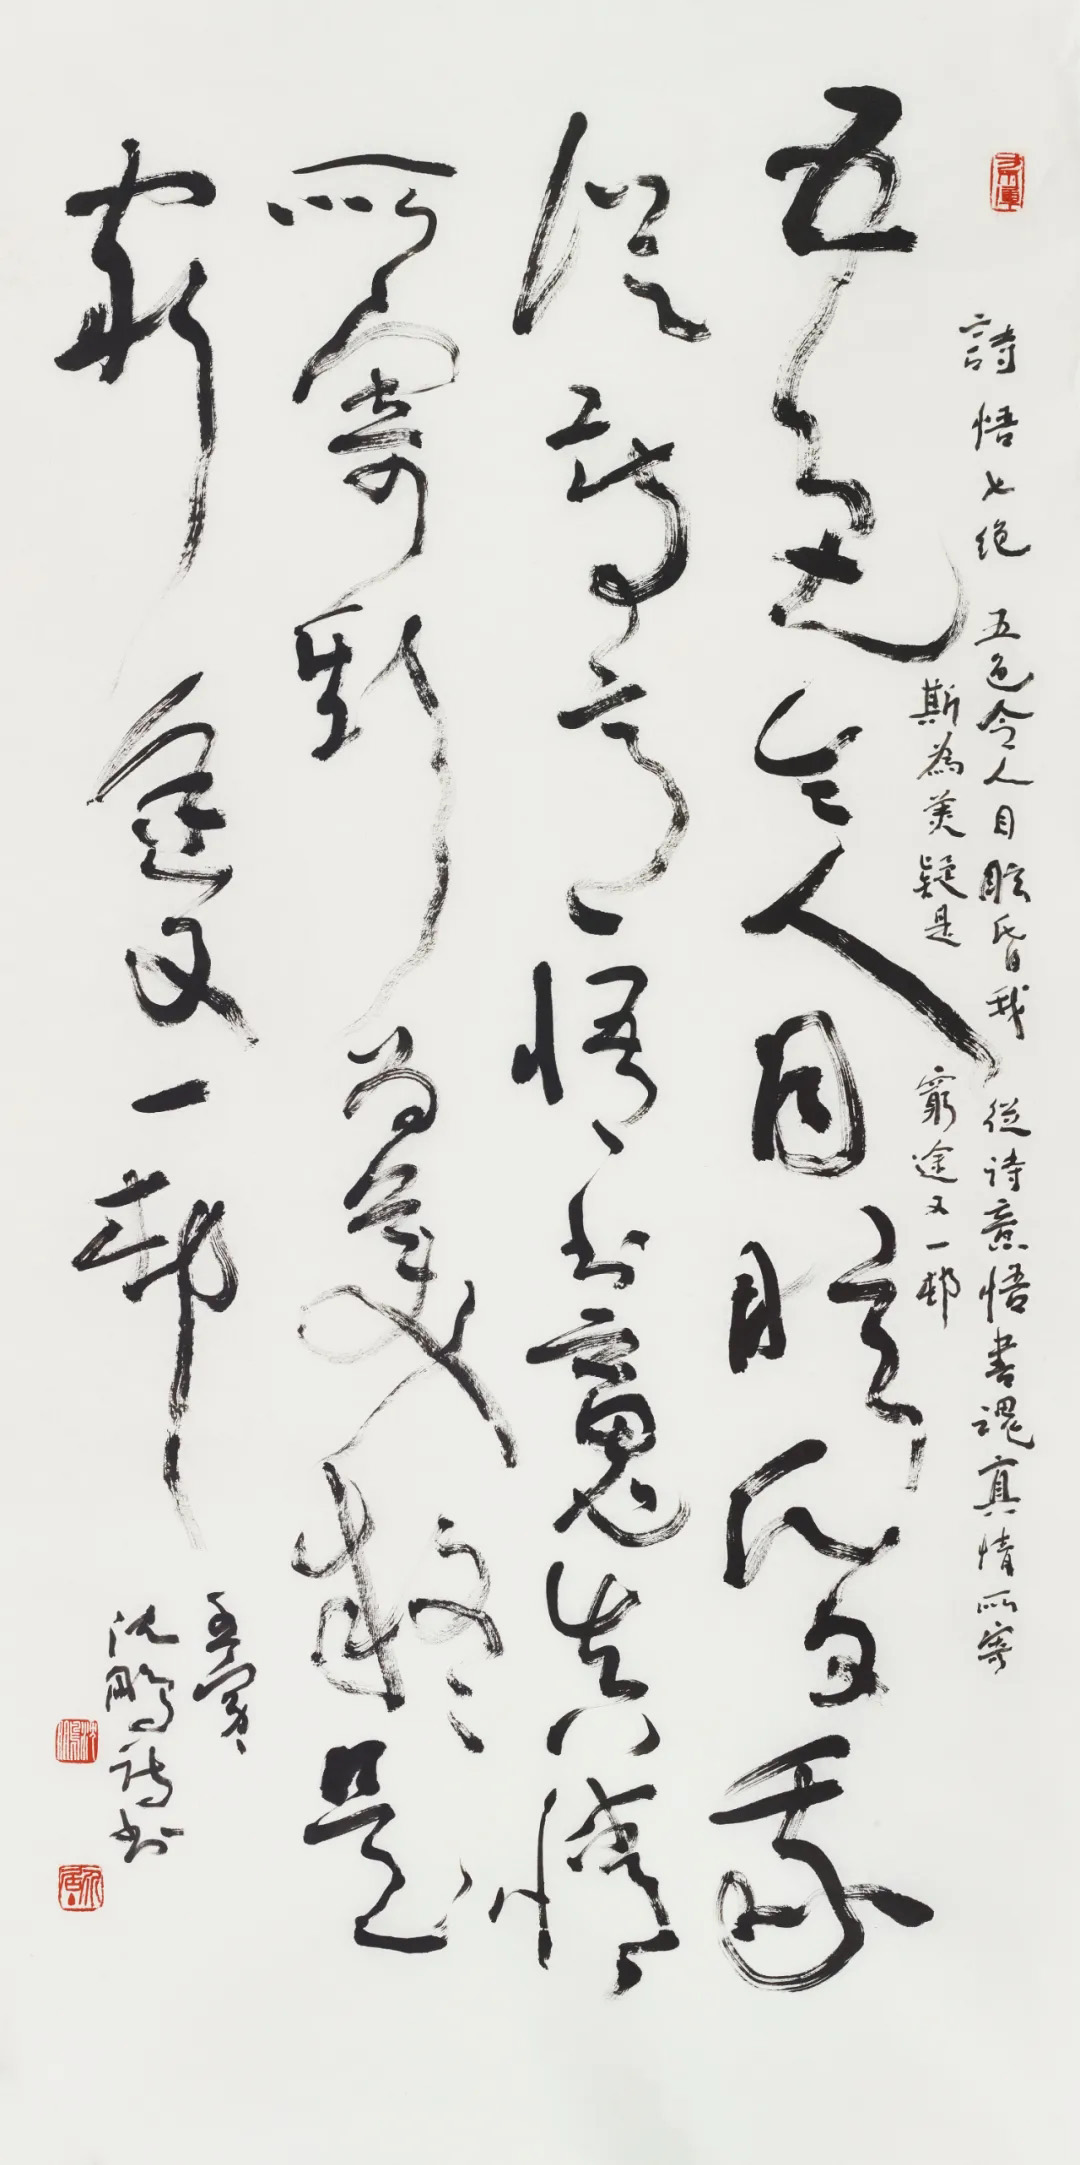 詩悟七绝 五色令人目眩昏我從诗意悟書魂真情所寄
斯為美疑是窮途又一邨
五色令人目眩昏我
從诗意悟书魂真情
所寄斯為美疑是
窮途又一邨
沈鵬诗书
沈鵬